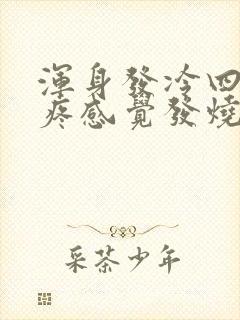 渾身發冷四
疼感覺發燒
采茶少年